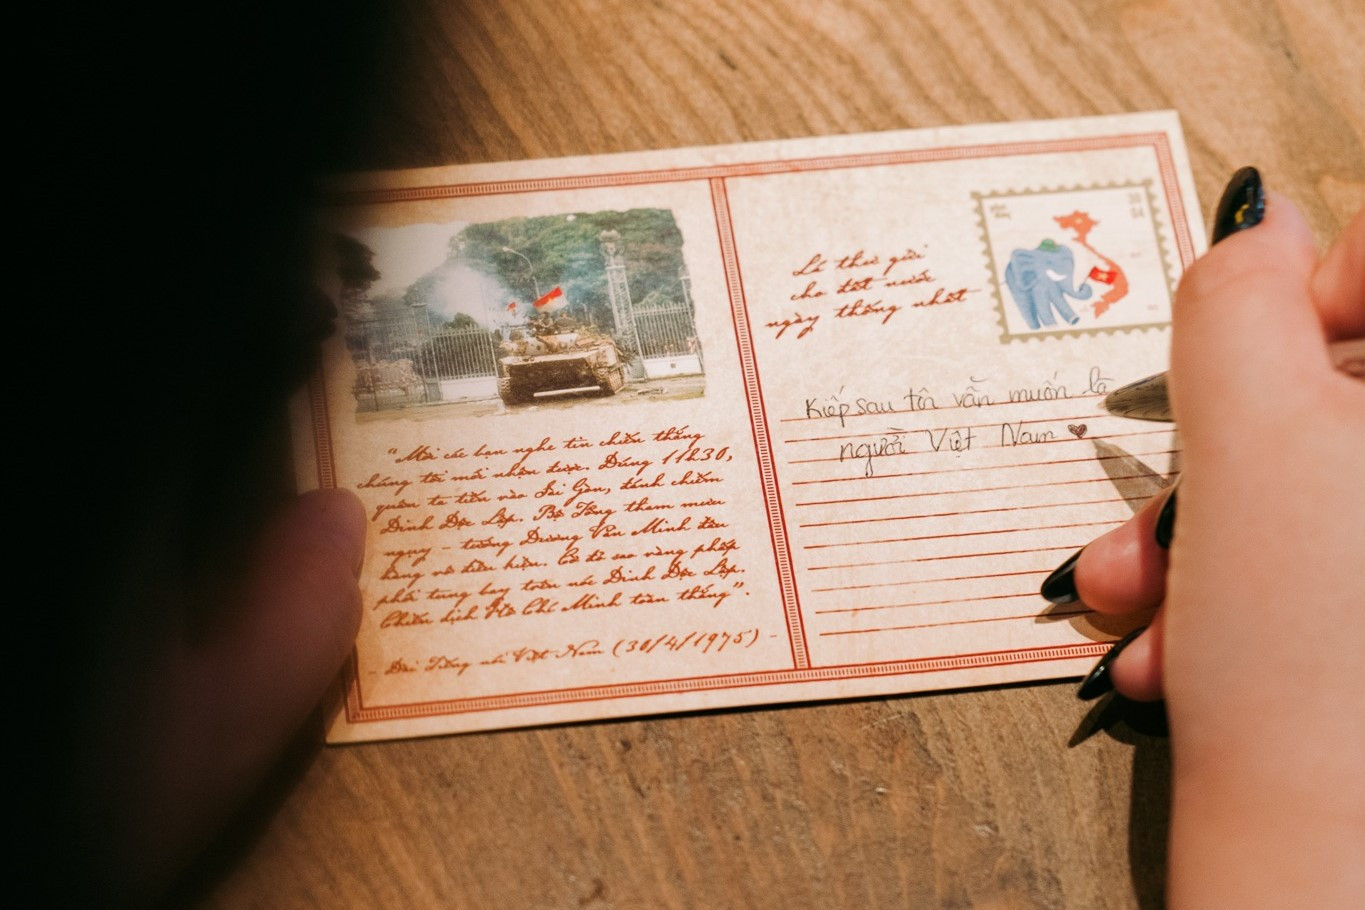 "Mời các bạn nghe tin chiến thắng
chúng tôi mới nhận được. Đúng 11h30,
quân ta tiến vào Sài Gòn, đánh chiếm
Dinh Độc Lập. Bộ Tổng tham mưu
ngụy - tướng Dương Văn Minh đầu
hàng vô điều kiện. Cờ đỏ sao vàng phấp
phới tung bay trên nóc Dinh Độc Lập.
Chiến dịch Hồ Chí Minh toàn thắng".
- Đài Tiếng nói Việt Nam (30/4/1975) -
Lá thư gửi
cho đất nước
ngày thống nhất
30
04
Kiếp sau tôi vẫn muốn là
người Việt Nam